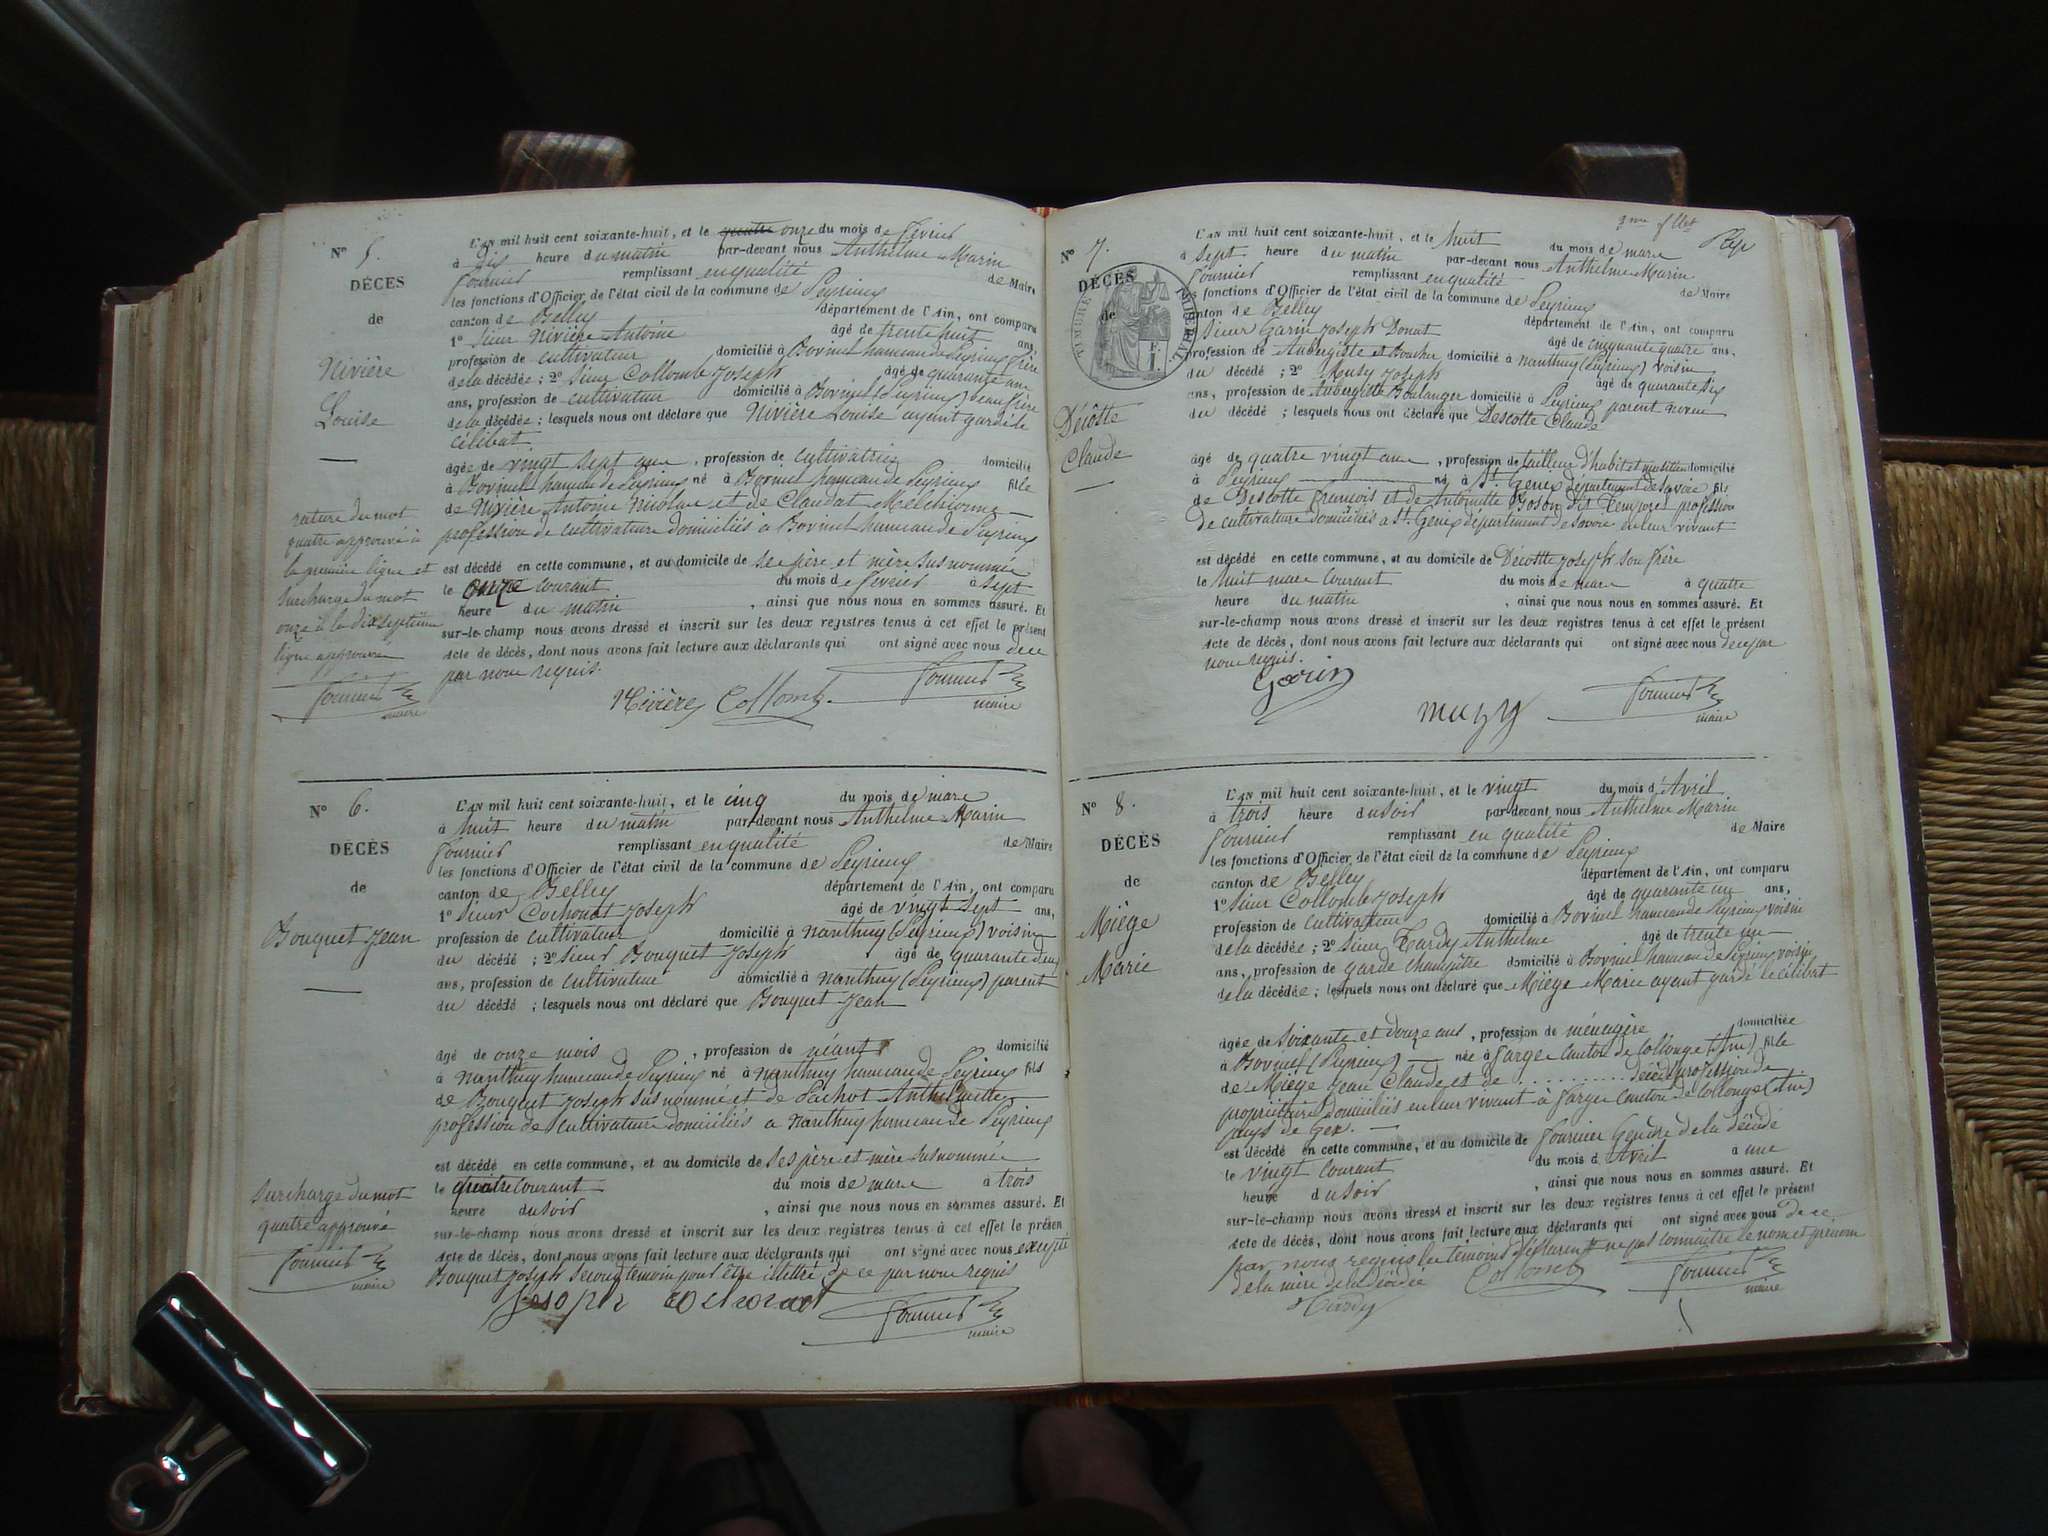 N° 5.
DÉCÈS
de
Nivière
Louise
rature du mot
quatre approuvé à
la première ligne et
surcharge du mot
onze à la dixseptième
ligne approuvée
Fournier
maire
L'AN mil huit cent soixante-huit, et le quatre onze du mois de février
à dix heure du matin par-devant nous Anthelme Marin
Fournier remplissant en qualité de Maire
les fonctions d'Officier de l'état civil de la commune de Peyrieux
canton de Belley département de l'Ain, ont comparu
1° Sieur Nivière Antoine âgé de trente huit ans,
profession de cultivateur domicilié à Bovinel hameau de Peyrieux frère
de la décédée ; 2° Sieur Collomb Joseph âgé de quarante un
ans, profession de cultivateur domicilié à Bovinel (Peyrieux) beau frère
de la décédée ; lesquels nous ont déclaré que Nivière Louise ayant gardé le
célibat
âgée de vingt sept ans, profession de cultivatrice domicilié
à Bovinel hameau de Peyrieux né à Bovinel hameau de Peyrieux fille
de Nivière Antoine Nicolas et de Claudat Melchionne
profession de cultivateurs domiciliés à Bovinel hameau de Peyrieux
est décédé en cette commune, et au domicile de ses père et mère susnommés
le onze courant du mois de février à sept
heure du matin, ainsi que nous nous en sommes assuré. Et
sur-le-champ nous avons dressé et inscrit sur les deux registres tenus à cet effet le présent
acte de décès, dont nous avons fait lecture aux déclarants qui ont signé avec nous de ce
par nous requis.
Nivière Collomb Fournier
maire
N° 6.
DÉCÈS
de
Bouquet Jean
surcharge du mot
quatre approuvé
Fournier
maire
L'AN mil huit cent soixante-huit, et le cinq du mois de mars
à huit heure du matin par-devant nous Anthelme Marin
Fournier remplissant en qualité de Maire
les fonctions d'Officier de l'état civil de la commune de Peyrieux
canton de Belley département de l'Ain, ont comparu
1° Sieur Cochonat Joseph âgé de vingt sept ans,
profession de cultivateur domicilié à Nanthuy (Peyrieux) voisin
du décédé ; 2° sieur Bouquet Joseph âgé de quarante deux
ans, profession de cultivateur domicilié à Nanthuy (Peyrieux) parent
du décédé ; lesquels nous ont déclaré que Bouquet Jean
âgé de onze mois, profession de néant domicilié
à Nanthuy hameau de Peyrieux né à Nanthuy hameau de Peyrieux fils
de Bouquet Joseph susnommé et de Pachot Anthelmette
profession de cultivateurs domiciliés à Nanthuy hameau de Peyrieux
est décédé en cette commune, et au domicile de ses père et mère susnommés
le quatre courant du mois de mars à trois
heure du soir, ainsi que nous nous en sommes assuré. Et
sur-le-champ nous avons dressé et inscrit sur les deux registres tenus à cet effet le présen
acte de décès, dont nous avons fait lecture aux déclarants qui ont signé avec nous excepté
Bouquet Joseph second témoin pour être illettré de ce par nous requis
Joseph cochonat Fournier
maire
3me fllet
N° 7.
DÉCÈS
de
TIMBRE IMPÉRIAL
Décôtte
Claude
L'AN mil huit cent soixante-huit, et le huit du mois de mars
à sept heure du matin par-devant nous Anthelme Marin
Fournier remplissant en qualité de Maire
les fonctions d'Officier de l'état civil de la commune de Peyrieux
canton de Belley département de l'Ain, ont comparu
Sieur Garin Joseph Donat âgé de cinquante quatre ans,
profession de Aubergiste et Boucher domicilié à Nanthuy (Peyrieux) voisin
du décédé ; 2° Muzy Joseph âgé de quarante six
ans, profession de Aubergiste Boulanger domicilié à Peyrieux parent neveu
du décédé ; lesquels nous ont déclaré que Descotte Claude
âgé de quatre vingt ans, profession de tailleur d'habit et domicilié
à Peyrieux né à St Genix département de Savoie fils
de Descotte François et de Antoinette Boson profession
de cultivateurs domiciliés à St. Genix département de Savoie en leur vivant
est décédé en cette commune, et au domicile de Décotte Joseph son frère
le huit mars courant du mois de mars à quatre
heure du matin, ainsi que nous nous en sommes assuré. Et
sur-le-champ nous avons dressé et inscrit sur les deux registres tenus à cet effet le présent
acte de décès, dont nous avons fait lecture aux déclarants qui ont signé avec nous de ce par
nous requis.
Garin
muzy Fournier
maire
N° 8.
DÉCÈS
de
Miège
Marie
L'AN mil huit cent soixante-huit, et le vingt du mois d'Avril
à trois heure du soir par-devant nous Anthelme Marin
Fournier remplissant en qualité de Maire
les fonctions d'Officier de l'état civil de la commune de Peyrieux
canton de Belley département de l'Ain, ont comparu
1° Sieur Collomb Joseph âgé de quarante un ans,
profession de cultivateur domicilié à Bovinel hameau de Peyrieux voisin
de la décédée ; 2° Sieur Tardy Anthelme âgé de trente un
ans, profession de garde champêtre domicilié à Bovinel hameau de Peyrieux voisin
de la décédée ; lesquels nous ont déclaré que Miège Marie ayant gardé le célibat
âgée de soixante et douze ans, profession de ménagère domiciliée
à Bovinel (Peyrieux) née à Farges canton de Collonge (Ain) fille
de Miège Jean Claude et de .......... décédés profession de
propriétaire domiciliés en leur vivant à Farges canton de Collonge (Ain)
pays de Gex.
est décédé en cette commune, et au domicile de Fournier Gendre de la décédé
le vingt courant du mois d'Avril à une
heure du soir, ainsi que nous nous en sommes assuré. Et
sur-le-champ nous avons dressé et inscrit sur les deux registres tenus à cet effet le présent
acte de décès, dont nous avons fait lecture aux déclarants qui ont signé avec nous de ce
par nous requis les témoins déclarent ne pas connaître le nom et prénom
de la mère de la décédée Collomb Fournier
Tardy maire